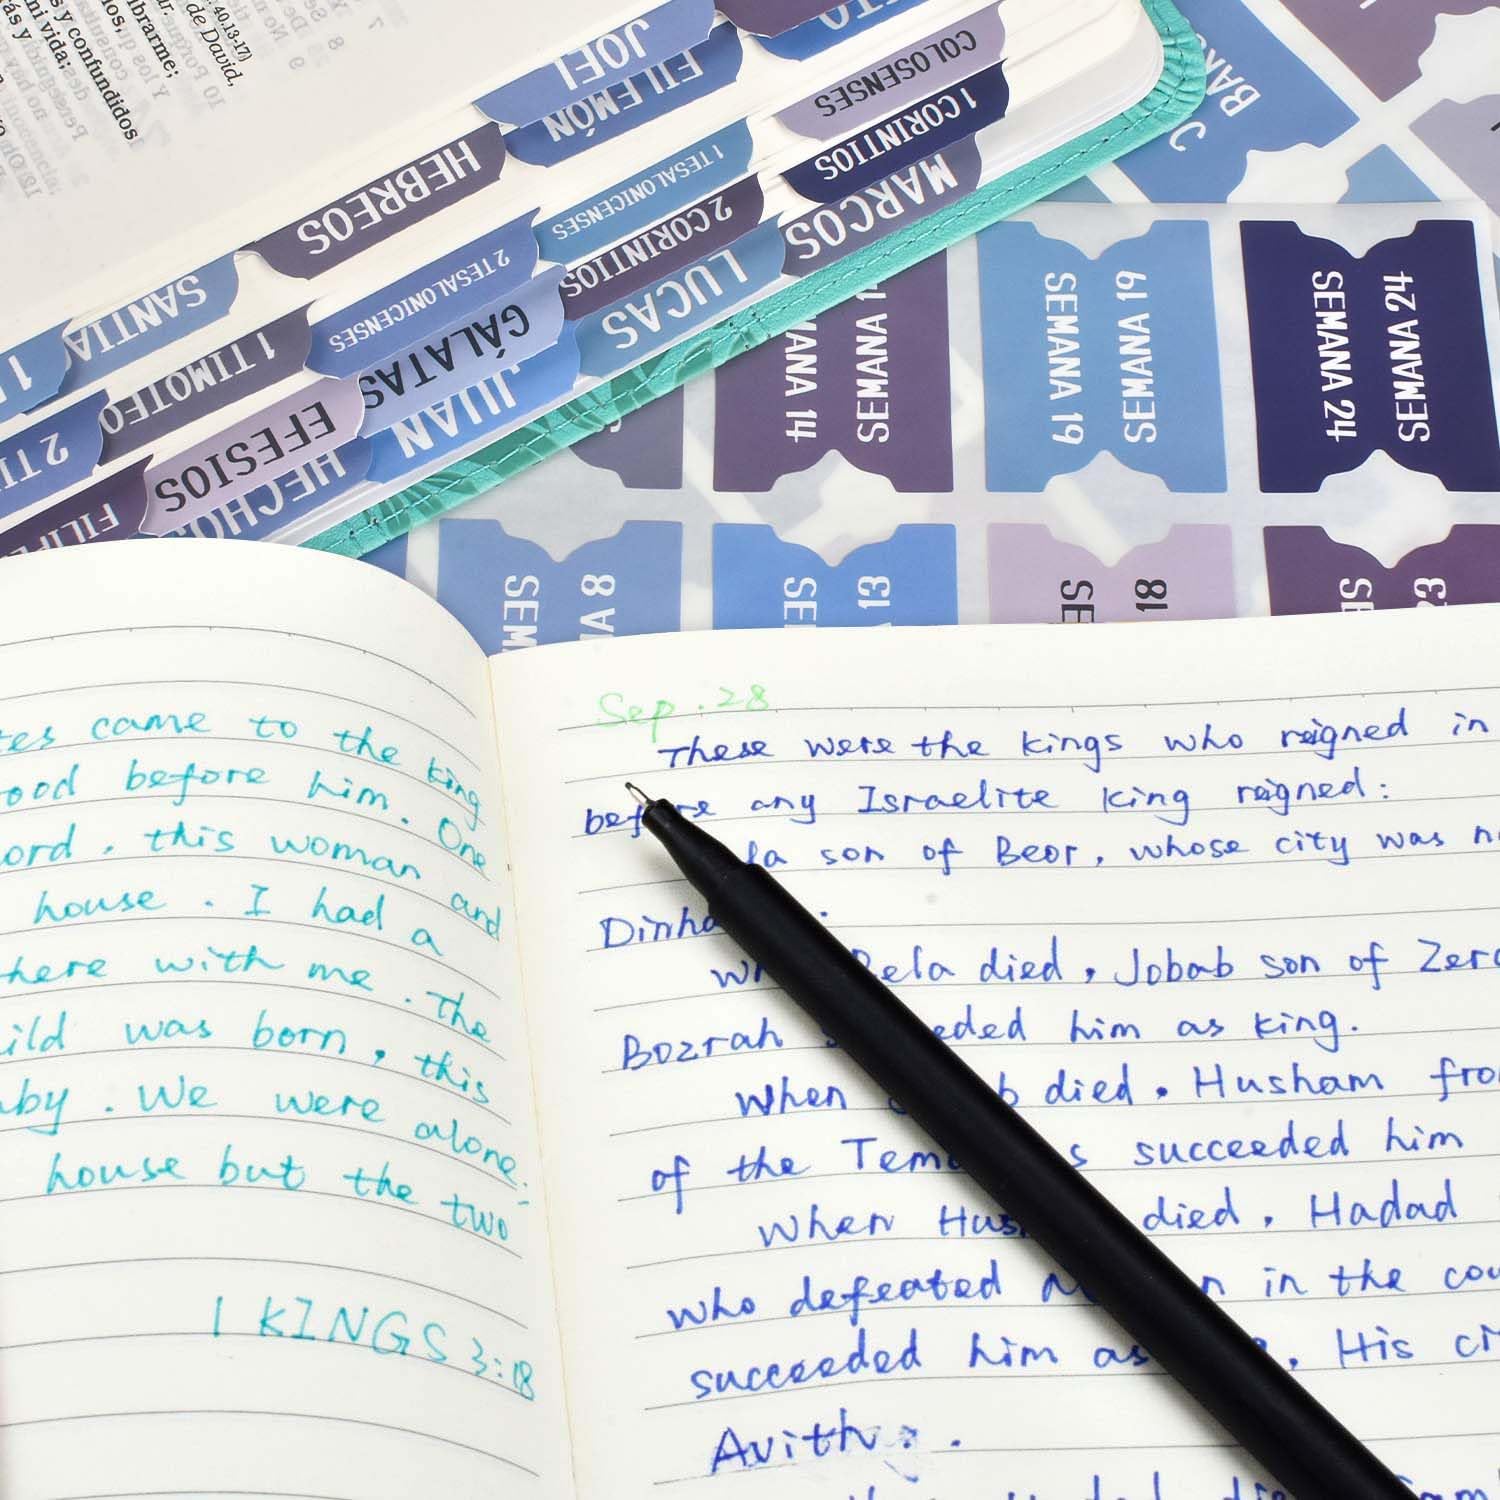 40.13-17)
de David,
ibrarme;
y confundidos
mi vida;
JOEL
FILEMÓN
COLOSENSES
1 CORINTIOS
HEBREOS
1 TESALONICENSES
2 CORINTIOS
MARCOS
SANTIA
2 TESALONICENSES
LUCAS
1 TIMOTEO
GÁLATAS
JUAN
2 TI
EFESIOS
HECHOS
FILIPE
SEMANA 19
SEMANA 19
SEMANA 24
SEMANA 24
MANA 14
SEMANA 1
SEM
A 8
SE
13
SE
18
SE
23
tes came to the king
ood before him. One
ord, this woman and
house. I had a
here with me. The
ild was born, this
aby. We were alone;
house but the two
1 KINGS 3:18
Sep. 28
These were the kings who reigned in
before any Israelite king reigned:
la son of Beor, whose city was n
Dinha
Bela died, Jobab son of Zera
Bozrah eded him as king.
When b died, Husham fro
of the Tem s succeeded him
When Hush died, Hadad
who defeated n in the cou
succeeded him as . His ci
Avith.